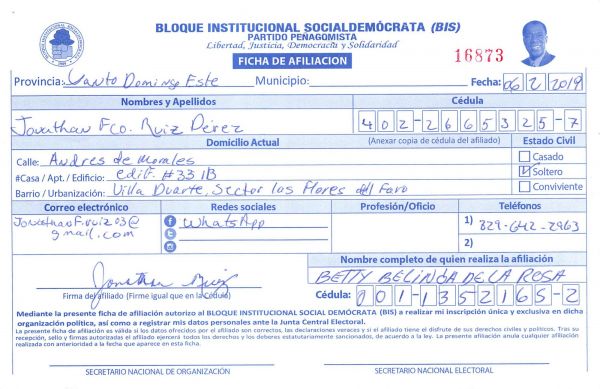 BLOQUE INSTITUCIONAL SOCIALDEMÓCRATA (BIS)
PARTIDO PEÑAGOMISTA
Libertad, Justicia, Democracia y Solidaridad
FICHA DE AFILIACION
16873
Provincia: Santo Domingo Este Municipio: Fecha: 06/2/2019
Nombres y Apellidos Cédula
Jonathan Fco. Ruiz Pérez 402-2665325-7
Domicilio Actual (Anexar copia de cédula del afiliado) Estado Civil
Calle: Andres de Morales Casado
#Casa / Apt. / Edificio: edif. #33 1B Soltero
Barrio / Urbanización: Villa Duarte, Sector los Flores del Faro Conviviente
Correo electrónico Redes sociales Profesión/Oficio Teléfonos
JonathanF.ruiz03@gmail.com WhatsApp 1) 829-642-2963
2)
Nombre completo de quien realiza la afiliación
Jonathan Ruiz BETTY BELINDA DE LA ROSA
Firma del afiliado (Firme igual que en la Cédula) Cédula: 001-1352165-2
Mediante la presente ficha de afiliación autorizo al BLOQUE INSTITUCIONAL SOCIAL DEMÓCRATA (BIS) a realizar mi inscripción única y exclusiva en dicha
organización política, así como a registrar mis datos personales ante la Junta Central Electoral.
La presente ficha de afiliación es válida si los datos ofrecidos por el afiliado son correctos, las declaraciones veraces y si el afiliado tiene el disfrute de sus derechos civiles y políticos. Tras su
recepción, sello y firmas autorizadas el afiliado ejercerá todos los derechos y los deberes estatutariamente sancionados, de acuerdo a la ley. La presente afiliación anula cualquier afiliación
realizada con anterioridad a la fecha que aparece en esta ficha.
SECRETARIO NACIONAL DE ORGANIZACIÓN SECRETARIO NACIONAL ELECTORAL